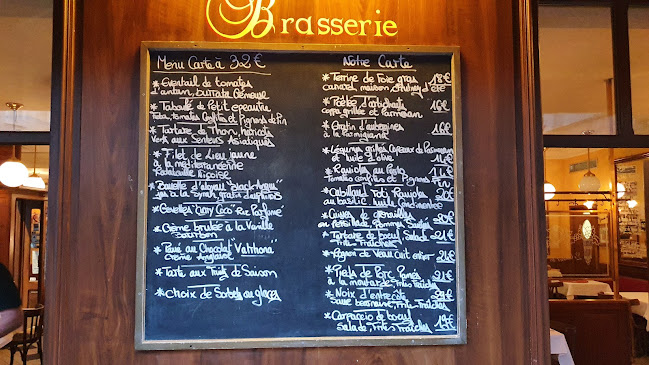 Brasserie
Menu Carte à 32 €
* Eventail de tomates
d'antan, burrata Crémeuse
* Taboulé de Petit epeautre
Feta, tomates Confites et Pignons de Pin
* Tartare de Thon, haricots
Verts aux Senteurs Asiatiques
* Filet de Lieu jaune
à la méditerranéenne
Ratatouille Niçoise
* Bavette d'aloyau "Black Angus"
jus à la Syrah, gratin dauphinois
"Crazy Coco"
* Crème brulée à la Vanille
Bourbon
* Pavé au Chocolat "Valrhona"
Crème Anglaise
* Tarte aux fruits de Saison
* Choix de Sorbets ou glaces
Notre Carte
* Terrine de Foie gras 18€
canard, maison, Chutney d'été
* Poêlée d'artichauts 16€
coppa grillée et Parmesan
* Gratin d'aubergines 16€
à la Parmigiana
* Légumes grillés, Copeaux de Parmesan
et huile d'olive 14€
* Ravioles au Pesto 16€
Tomates confites et Pignons
* Cabillaud Roti, Ravioles
au basilic, huile 20€
* Cuisses de grenouilles
en Persillade, Pommes Sautées
* Tartare de boeuf, Salade 21€
Frites Fraîches
* Rognon de Veau Cuit entier 21€
* Pieds de Porc Panés 21€
à la moutarde, Frites Fraîches
* Noix d'entrecôte
Sauce béarnaise, Frites Fraîches
* Carpaccio de boeuf
Salade, Frites Fraîches 19€